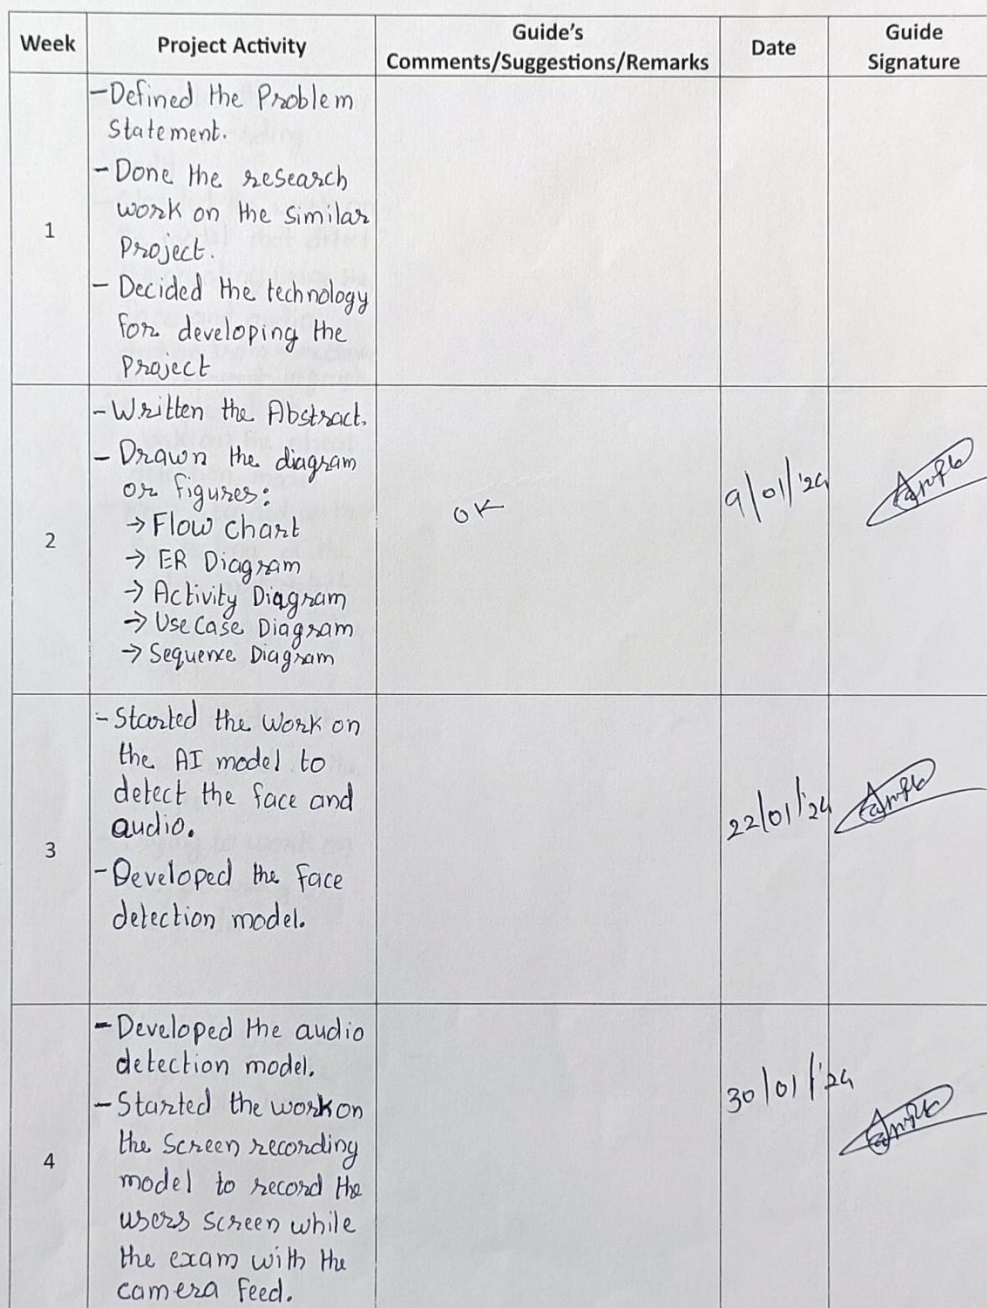 Week
Project Activity
Guide's
Comments/Suggestions/Remarks
Date
Guide
Signature
1
-Defined the Problem
Statement.
-Done the research
work on the similar
Project.
- Decided the technology
for developing the
Project
2
-Written the Abstract.
- Drawn the diagram
or figures:
→ Flow chart
→ ER Diagram
→ Activity Diagram
→ Use Case Diagram
→ Sequence Diagram
OK
9/01/'24
3
- Started the work on
the AI model to
detect the face and
audio.
-Developed the face
detection model.
22/01/'24
4
-Developed the audio
detection model.
-Started the work on
the screen recording
model to record the
users screen while
the exam with the
camera feed.
30/01/'24